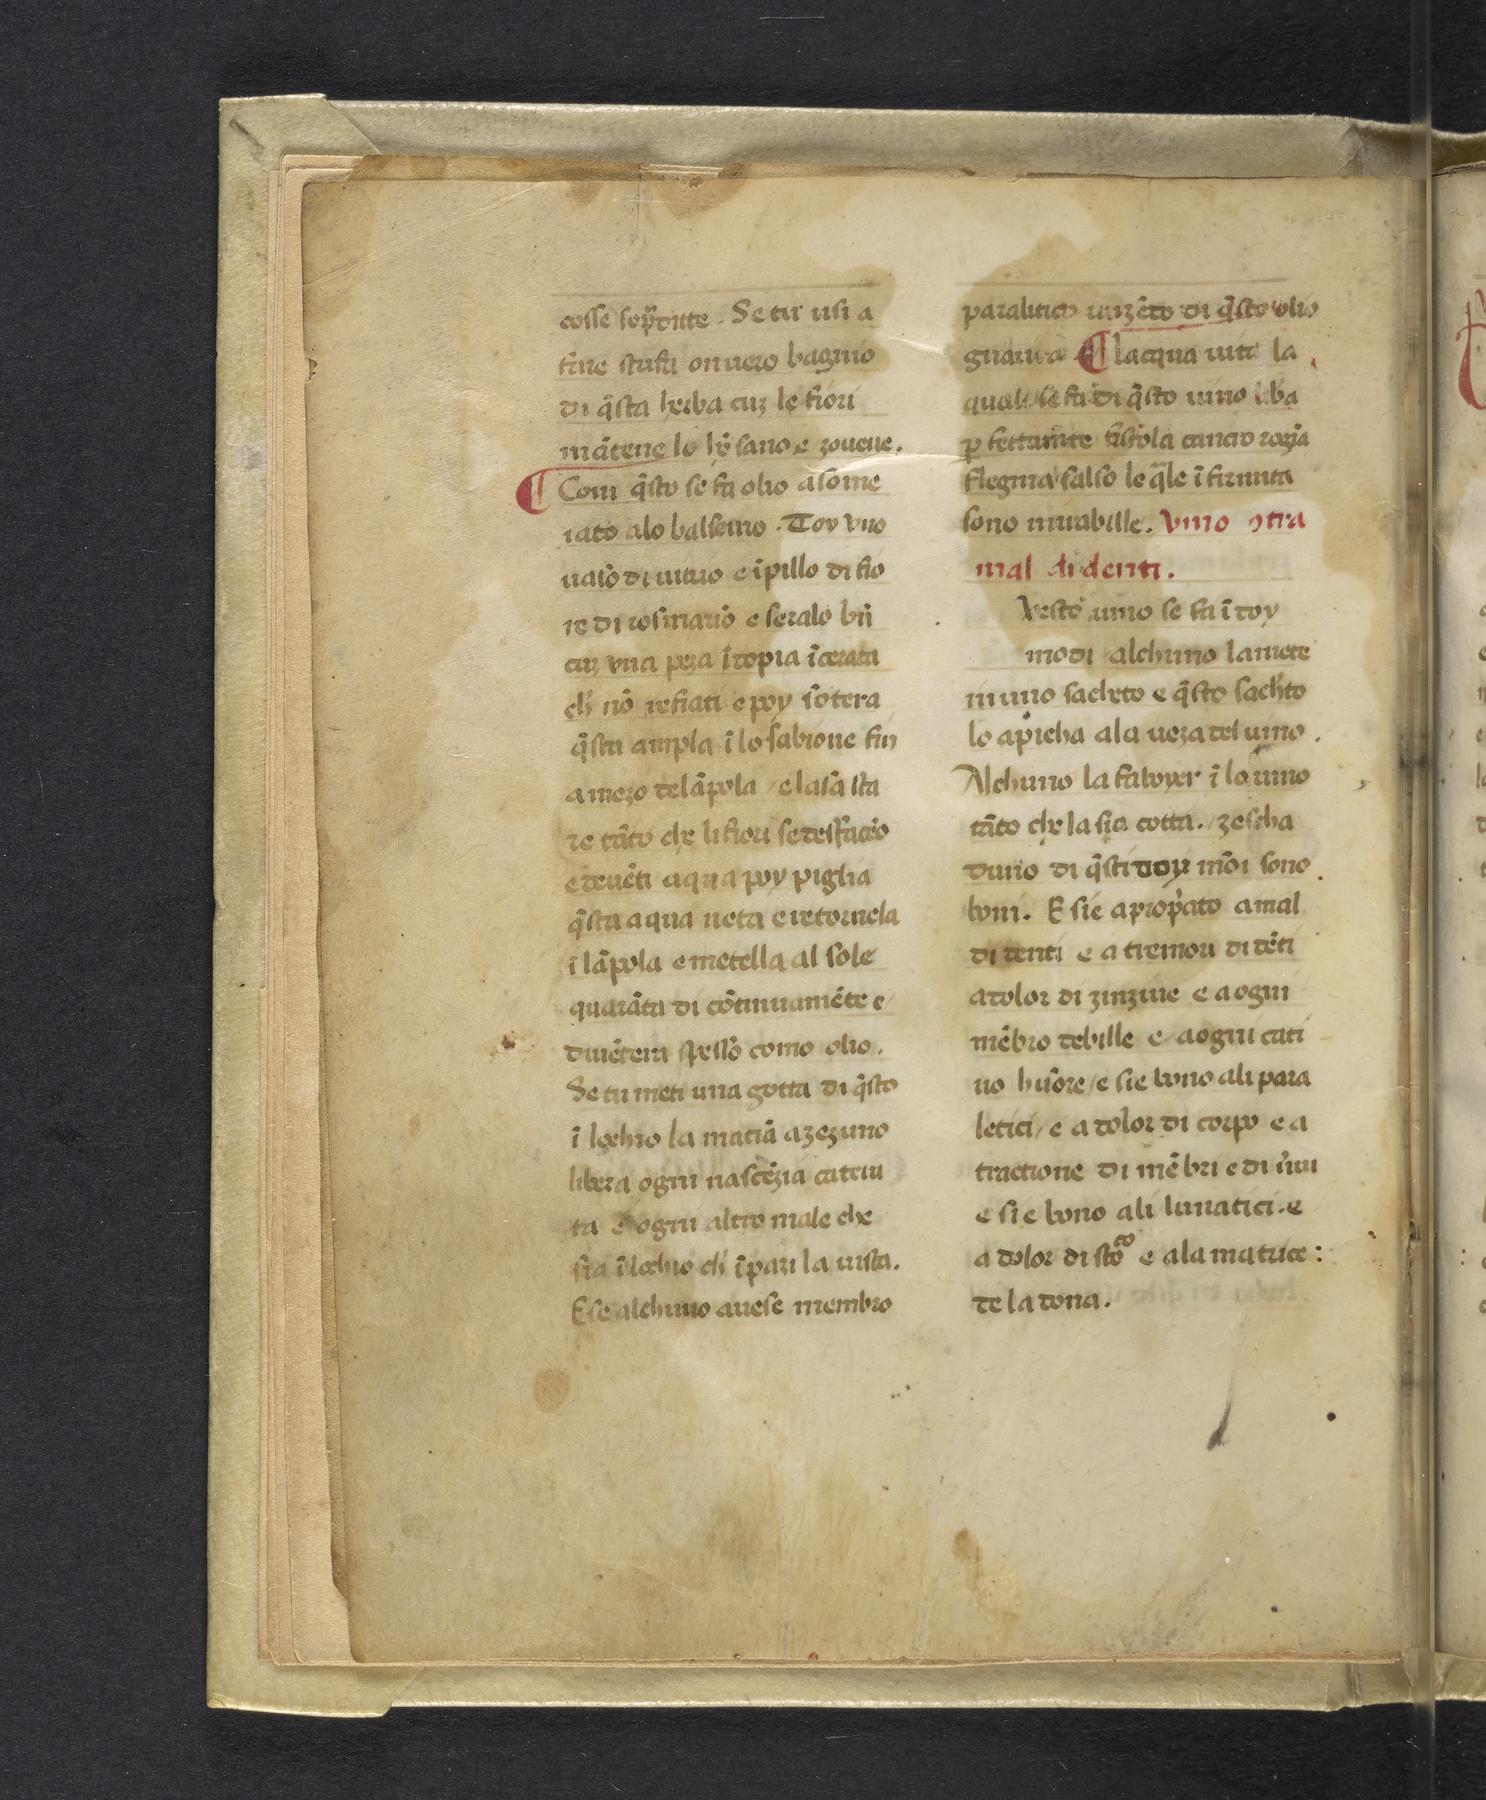 cosse sop̃ditte. Se tu usi a
fare stufa onuero bagnio
di q̃sta herba cuz le fiori
mãtene lo hõ sano e zouene.
¶ Com q̃sto se fa olio asome
iato alo balsemo. Toy vno
uaso di uitrio e ĩpillo di fio
re di rosmario e seralo bñ
cuz vna peza ĩ topia ĩcerata
ch nõ refiati e poy sotera
q̃sta ampla ĩ lo sabione fin
a mezo de lãpola e lasa sta
re tãto che li fiori se desfacẽo
e deuẽti aqua poy piglia
q̃sta aqua neta e retornela
ĩ lãpola e metella al sole
quarãta di cõtinuamẽte e
diuẽtera spesso como olio.
Se tu meti una gotta di q̃sto
ĩ lochio la matiã azezuno
libera ogni nascẽzia catiui
ta e ogni altro male che
sia ĩ lochio ch ĩpazi la uista.
E se alchuno auese membro
paralitico unzẽto di q̃sto olio
guarira ¶ lacqua uite la
quale se fa di q̃sto uino liba
ꝑfettamẽte fistola cancro rogia
flegma salso le q̃le ĩfirmita
sono mirabille. Vino ꝯtra
mal di denti.
Vesto uino se fa ĩ doy
modi alchuno la mete
in uno sacheto e q̃sto sacheto
lo apicha ala ueza del uino.
Alchuno la fa boyer ĩ lo uino
tãto che la sia cotta. zescha
duno di q̃sti doy mõi sono
boni. E sie apropiato a mal
di denti e a tremori di dẽti
a dolor di zinziue e a ogni
mẽbro debille e a ogni cati
uo humore / e sie bono ali para
letici / e a dolor di corpo e a
tractione di mẽbri e di n̄ui
e sie bono ali lunatici. e
a dolor di stoco e ala matrice:
de la dona.